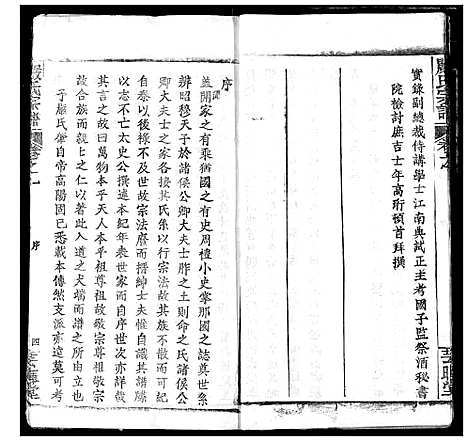 實錄副總裁侍講學士江南典試正主考國子監祭酒秘書
院檢討庶吉士年高珩頓首拜撰
序
蓋聞家之有乘猶國之有史周禮小史掌邦國之誌奠世系
辨昭穆天子於諸侯公卿大夫士胙之土則命之氏諸侯公
卿大夫士之家各接其氏系以行宗法故其時族無不睦
自秦以後祿不及世故宗法廢而搢紳士夫惟自譏其譜牒
以志不亡太史公撰述本紀年表世家而自序世次亦詳哉
其言之故曰萬物本乎天人本乎祖尊祖故敬宗尊祖敬宗
故合族而親上之仁以著此入道之大端而譜之所由立也
予嚴氏雖自帝高陽固已悉載本傳然支派亦遠莫可考
序
四